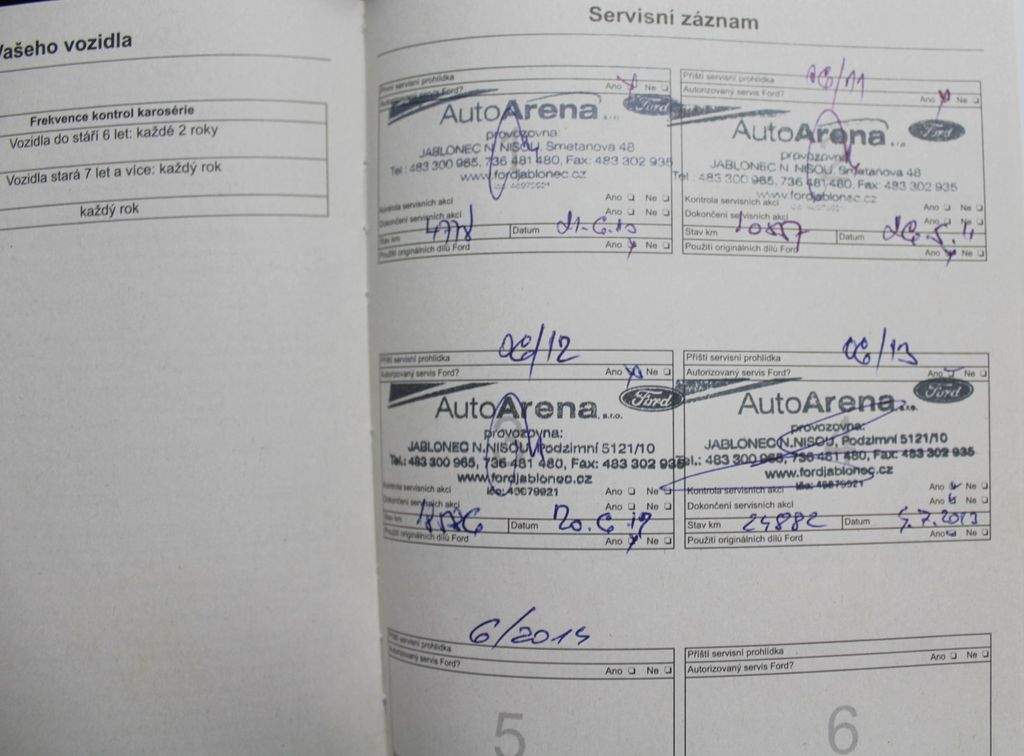 Vašeho vozidla
Frekvence kontrol karosérie
Vozidla do stáří 6 let: každé 2 roky
Vozidla stará 7 let a vice: každý rok
každý rok
Servisní záznam
servisní prohlídka
Autorizovaný servis Ford? Ano Ne
AutoArena
Ford
provozovna:
JABLONEC N. NISOU, Smetanova 48
Tel.: 483 300 965, 736 481 480, Fax: 483 302 935
www.fordjablonec.cz
Kontrola servisních akcí Ano Ne
Dokončení servisních akcí Ano Ne
Stav km Datum 21.6.10
Použití originálních dílů Ford Ano Ne
Příští servisní prohlídka 06/11
Autorizovaný servis Ford? Ano Ne
AutoArena
Ford
provozovna:
JABLONEC N. NISOU, Smetanova 48
Tel.: 483 300 965, 736 481 480, Fax: 483 302 935
www.fordjablonec.cz
Kontrola servisních akcí Ano Ne
Dokončení servisních akcí Ano Ne
Stav km Datum 26.5.11
Použití originálních dílů Ford Ano Ne
Příští servisní prohlídka 06/12
Autorizovaný servis Ford? Ano Ne
AutoArena s.r.o.
Ford
provozovna:
JABLONEC N.NISOU, Podzimní 5121/10
Tel.: 483 300 965, 736 481 480, Fax: 483 302 935
www.fordjablonec.cz
Kontrola servisních akcí Ano Ne
Ičo: 49679921
Dokončení servisních akcí
Datum 20.6.12
Použití originálních dílů Ford Ano Ne
Příští servisní prohlídka 06/13
Autorizovaný servis Ford? Ano Ne
AutoArena s.r.o.
Ford
provozovna:
JABLONEC N.NISOU, Podzimní 5121/10
Tel.: 483 300 965, 736 481 480, Fax: 483 302 935
www.fordjablonec.cz
Kontrola servisních akcí Ano Ne
Ičo: 49679921
Dokončení servisních akcí Ano Ne
Stav km 24882 Datum 4.7.2013
Použití originálních dílů Ford Ano Ne
Příští servisní prohlídka 6/2014
Autorizovaný servis Ford? Ano Ne
5
Příští servisní prohlídka Ano Ne
Autorizovaný servis Ford?
6